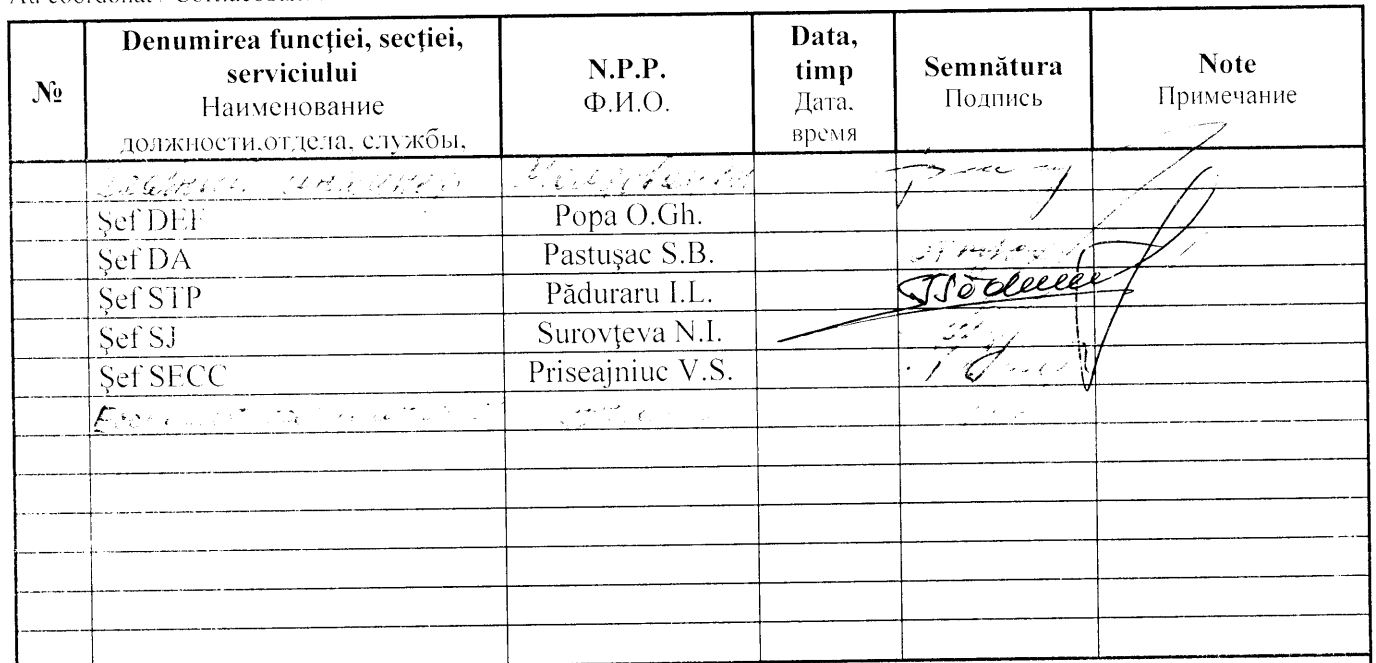 Au coordonat /
№
Denumirea funcţiei, secţiei,
serviciului
Наименование
должности,отдела, службы,
N.P.P.
Ф.И.О.
Data,
timp
Дата,
время
Semnătura
Подпись
Note
Примечание
Şef DEF Popa O.Gh.
Şef DA Pastuşac S.B.
Şef STP Păduraru I.L.
Şef SJ Surovţeva N.I.
Şef SECC Priseajniuc V.S.